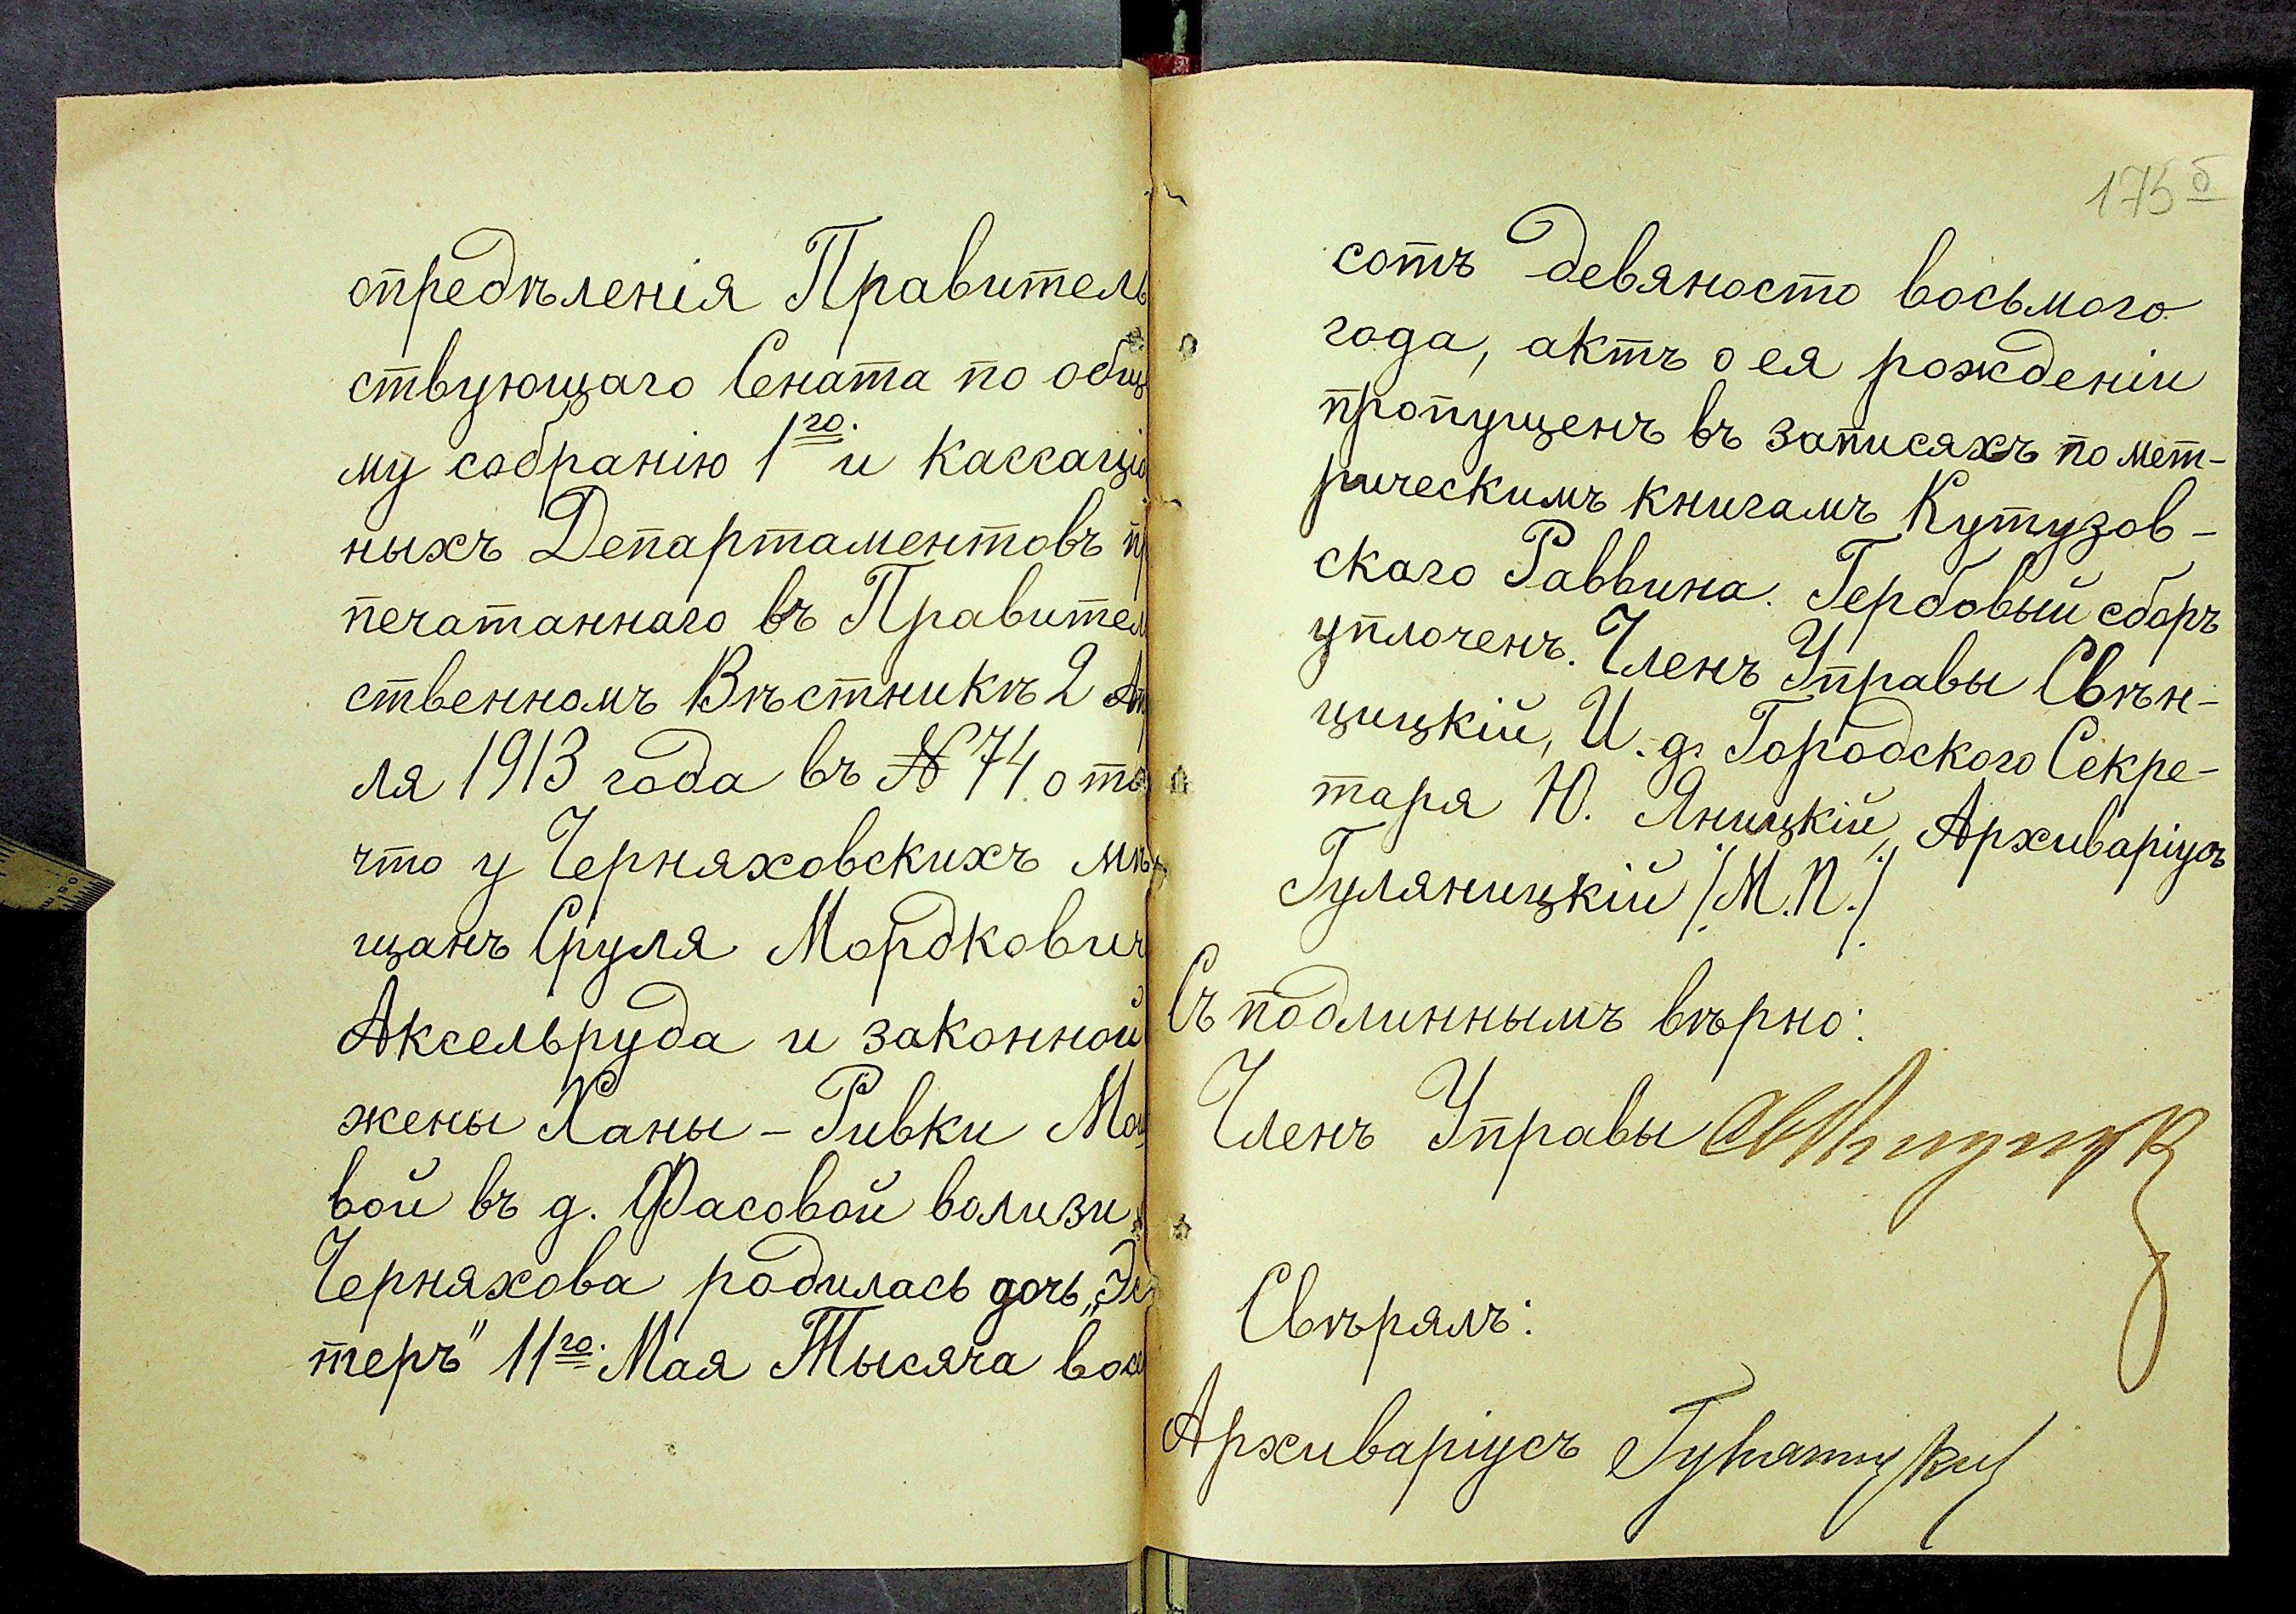 опредѣленія Правитель
ствующаго Сената по общ
му собранію 1го. и кассаціо
ныхъ Департаментовъ пр
печатаннаго въ Правител
ственномъ Вѣстникѣ 2 Ап
ля 1913 года въ № 74 о то
что у Черняховскихъ мѣ
щанъ Сруля Мордкович
Аксельруда и законной
жены Ханы-Ривки
вой въ д. Фасовой волизи
Черняхова родилась дочь „Эс
теръ" 11го. Мая Тысяча вос
175б
сотъ девяносто восьмого
года, актъ о ея рожденіи
пропущенъ въ записяхъ по мет-
рическимъ книгамъ Кутузов-
скаго Раввина. Гербовый сборъ
уплоченъ. Членъ Управы Свѣн-
цицкій, И. д. Городского Секре-
таря Ю. Яницкій, Архиваріусъ
Гуляницкій /М.П./
Съ подлиннымъ вѣрно:
Членъ Управы
Свѣрялъ:
Архиваріусъ Гуляницкій